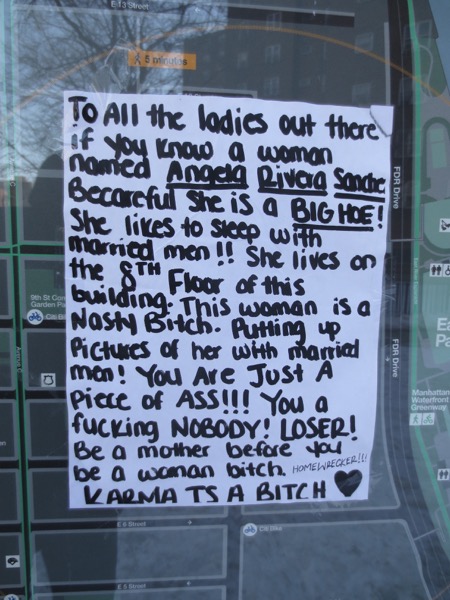 E 13 Street
5 minutes
To All the ladies out there
if you know a woman
named Angela Rivera Sanche
Becareful She is a BIG HOE!
She likes to sleep with
married men!! She lives on
the 8TH Floor of this
building. This woman is a
Nasty Bitch. Putting up
Pictures of her with married
men! You Are Just A
Piece of ASS!!! You a
fucking NOBODY! LOSER!
Be a mother before you
be a woman bitch. HOMEWRECKER!!!
KARMA IS A BITCH
FDR Drive
FDR Drive
9th St Com
Garden Pa
Citi Bi
Ea
Pa
Manhattan
Waterfront
Greenway
E 6 Street
Citi Bike
E 5 Street